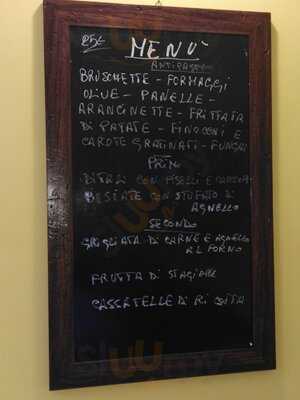 25€
MENÙ
ANTIPASTO
BRUSCHETTE - FORMAGGI
OLIVE - PANELLE -
ARANCINETTE - FRITTATA
DI PATATE - FINOCCHI E
CAROTE GRATINATI - FUNGHI
PRIMI
DITALI CON PISELLI E
CON STUFATO DI
AGNELLO
SECONDO
GRIGLIATA DI CARNE E AGNELLO
AL FORNO
FRUTTA DI STAGIONE
CASSATELLE DI RICOTTA